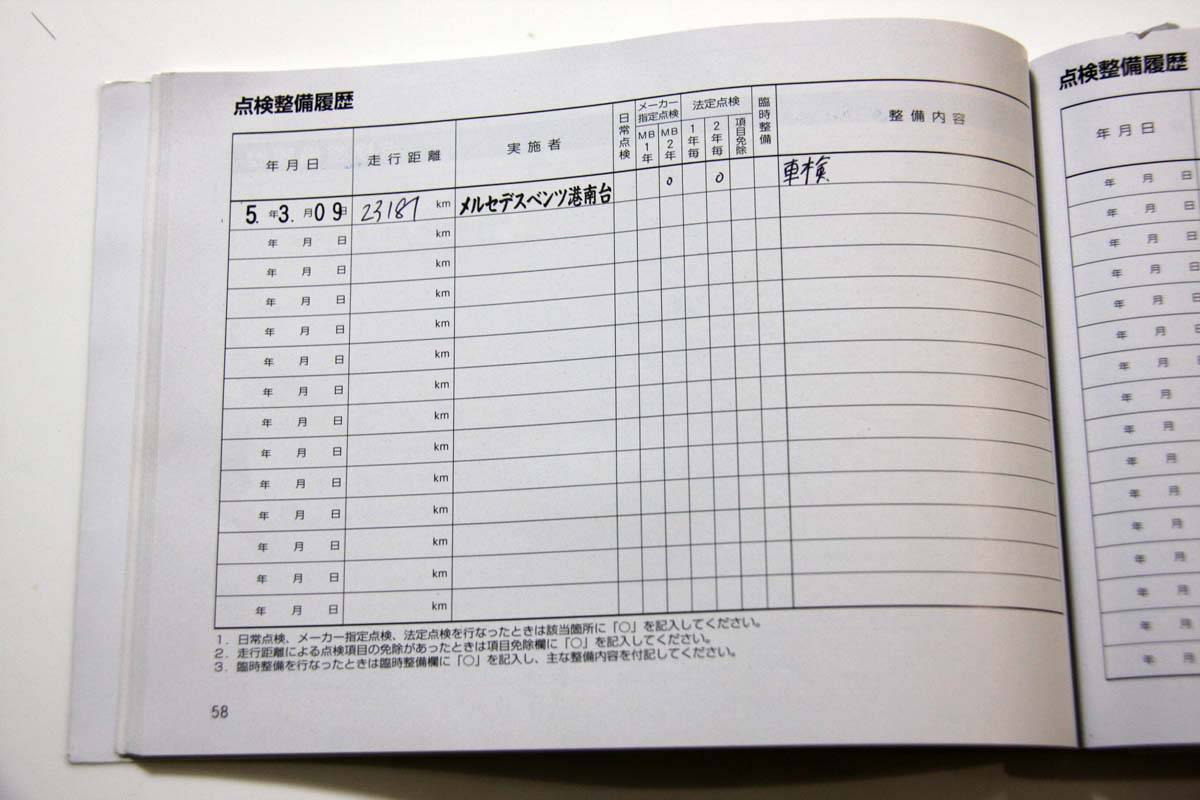 点検整備履歴
年月日 走行距離 実施者 日常点検 メーカー指定点検 MB1年 MB2年 法定点検 1年毎 2年毎 項目免除 臨時整備 整備内容
5.年3.月09日 23187 km メルセデスベンツ港南台 ○ ○ 車検
年 月 日 km
年 月 日 km
年 月 日 km
年 月 日 km
年 月 日 km
年 月 日 km
年 月 日 km
年 月 日 km
年 月 日 km
年 月 日 km
年 月 日 km
年 月 日 km
年 月 日 km
1. 日常点検、メーカー指定点検、法定点検を行なったときは該当箇所に「○」を記入してください。
2. 走行距離による点検項目の免除があったときは項目免除欄に「○」を記入してください。
3. 臨時整備を行なったときは臨時整備欄に「○」を記入し、主な整備内容を付記してください。
58
点検整備履歴
年月日
年 月 日
年 月 日
年 月 日
年 月 日
年 月 日
年 月 日
年 月 日
年 月 日
年 月 日
年 月
年 月
年 月
年 月
年 月
年 月
年 月